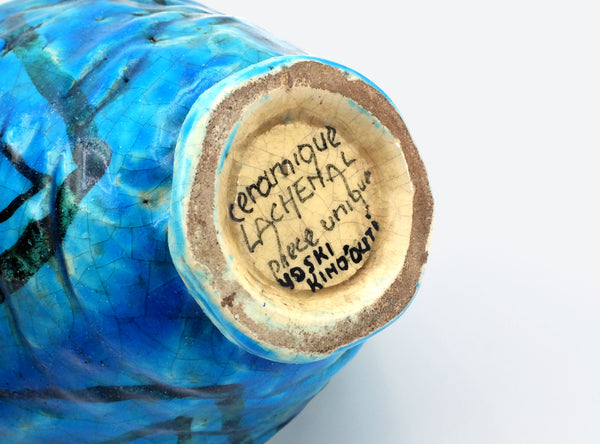 ceramique
LACHENAL
piece unique
YOSKI
KINO'OUTI